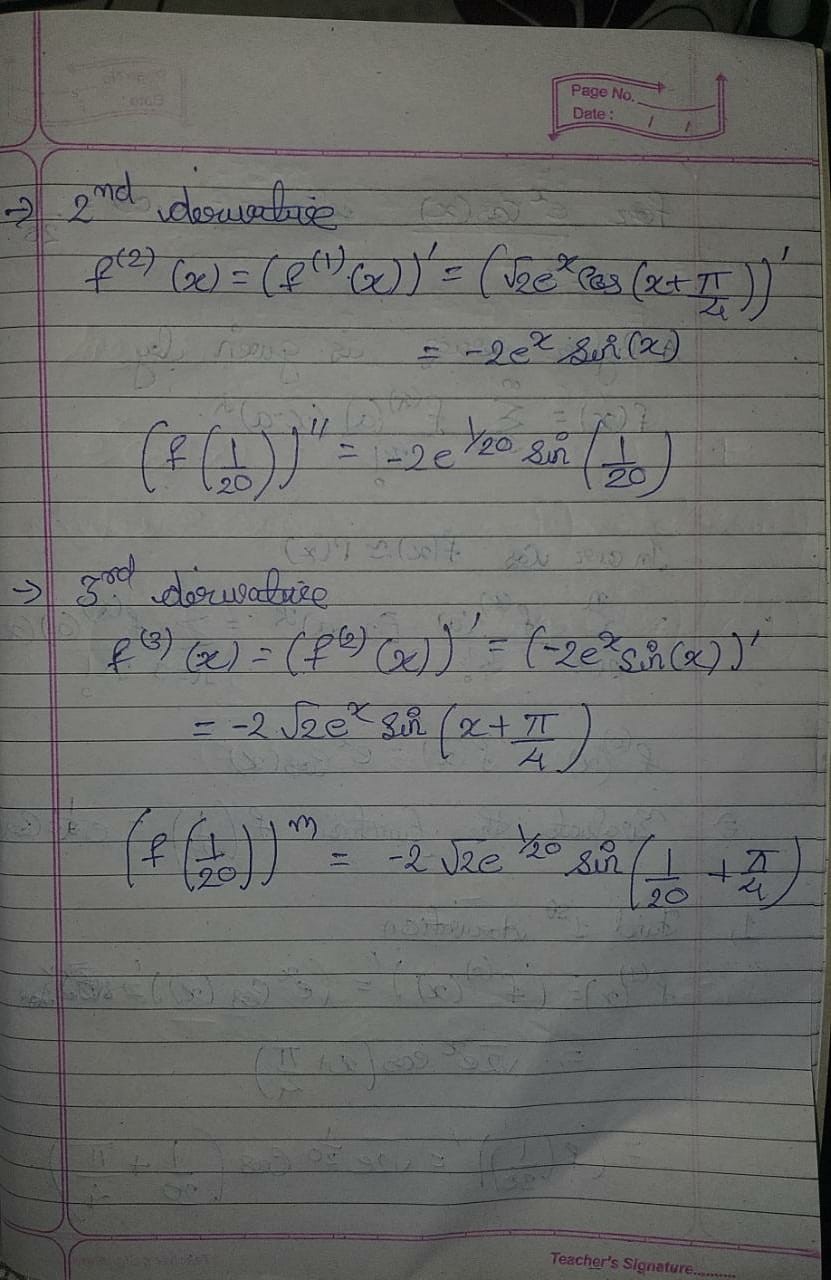 Page No.
Date : / /
→ 2nd derivative
f^(2) (x) = (f^(1) (x))' = (√2e^x cos(x+π/4))'
= -2e^x sin(x)
(f(1/20))'' = -2e^1/20 sin(1/20)
→ 3rd derivative
f^(3) (x) = (f^(2) (x))' = (-2e^x sin(x))'
= -2√2e^x sin(x+π/4)
(f(1/20))''' = -2√2e^1/20 sin(1/20 + π/4)
Teacher's Signature..........